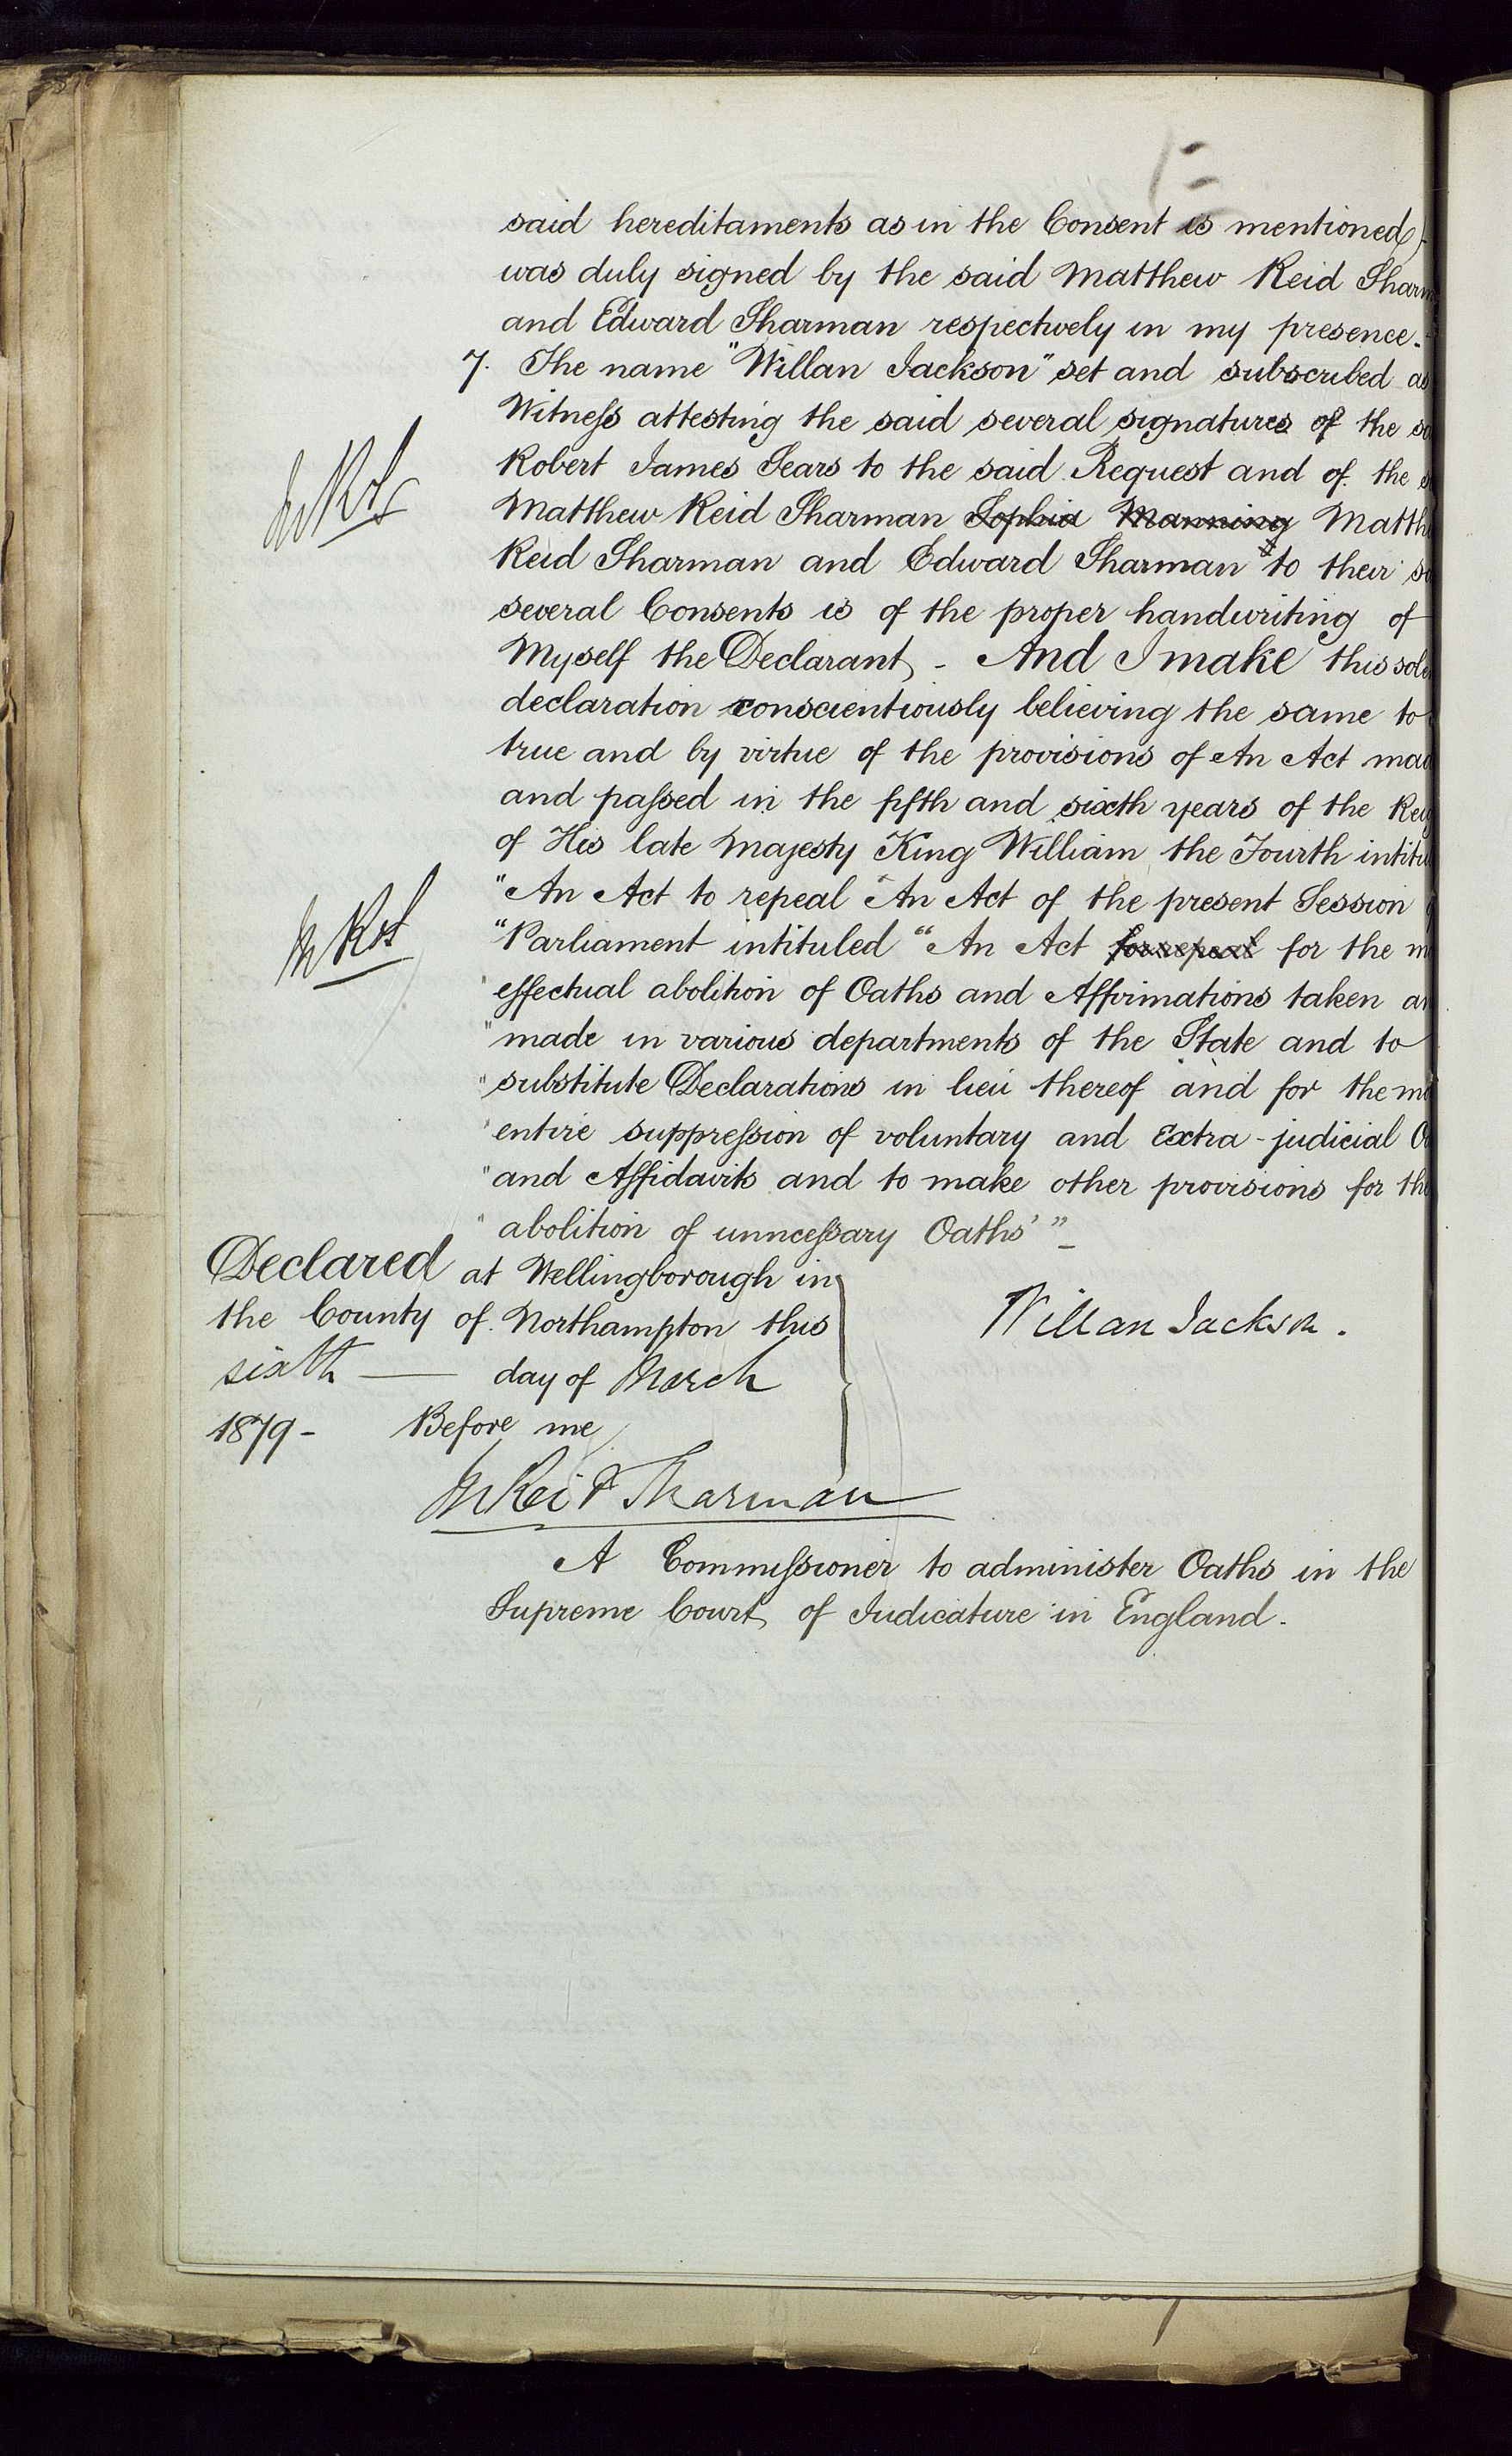 said hereditaments as in the Consent is mentioned
was duly signed by the said Matthew Reid Sharm
and Edward Sharman respectively in my presence.
7. The name "Willan Jackson" set and subscribed as
Witness attesting the said several signatures of the sa
Robert James Sears to the said Request and of the s
Matthew Reid Sharman Sophia Manning Matthe
Reid Sharman and Edward Sharman to their sa
several Consents is of the proper handwriting of
Myself the Declarant - And I make this sole
declaration conscientiously believing the same to
true and by virtue of the provisions of An Act mad
and passed in the fifth and sixth years of the Reig
of His late Majesty King William the Fourth intitu
"An Act to repeal An Act of the present Session
"Parliament intituled "An Act for repeal for the m
"effectual abolition of Oaths and Affirmations taken an
"made in various departments of the State and to
"substitute Declarations in lieu thereof and for the mo
"entire suppression of voluntary and Extra-judicial O
"and Affidavits and to make other provisions for the
"abolition of unncessary Oaths'"
Declared at Wellingborough in
the County of Northampton this
sixth day of March
1879 - Before me
Willan Jackson.
M Reid Sharman
A Commissioner to administer Oaths in the
Supreme Court of Judicature in England.
MRS
MRS